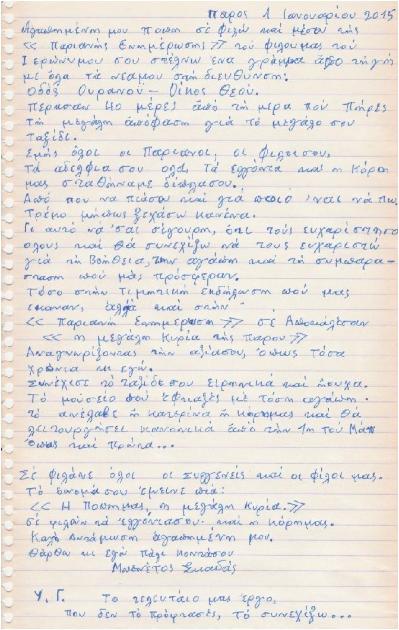 Παρος 1 Ιανουαρίου 2015
Αγαπημένη μου Ποπη σέ φιλώ καί μέσω τής
<< Παριανής Ενημέρωσης >> τού φίλου μας τού
Ιερώνυμου σου στέλνω ένα γράμμα άπο τη γή
με όλα τα νέα μου στή διευθυνση:
Οδός Ουρανού - Οίκος Θεού.
Περασαν 40 μέρες άπό τη μερα πού πήρες
Τη μεγάλη άπόφαση γιά το μεγάλο σου
ταξίδι.
Εμης όλοι οι Παριανοι, οι φίλοι σου,
τά αδελφια σου ολα, τα εγγονια και η Κόρη
μας σταθήκαμε δίπλα σου.
Από που να πιάσω καί γιά ποιό 'ναι νά πω
Τρέμω μήπως ξεχάσω κανένα.
Γι αυτό να 'σαι σίγουρη, ότι τούς ευχαρίστησα
ολους καί θα συνεχίζω νά τους ευχαριστώ
γιά τη βοήθεια, την αγάπη καί τη συμπαρα-
σταση πού μάς πρόσφεραν.
Τόσο στήν Τιμητική εκδήλωση πού μας
εκαναν, άλλά καί στήν
<< Παριανή Ενημέρωση >> σέ Αποκάλεσαν
<< η μεγάλη Κυρία της Παρου >>
Αναγνωρίζοντας τήν αξία σου, όπως τόσα
χρόνια κι εγώ.
Συνέχισε το ταξίδι σου ειρηνικά καί ήσυχα.
Το μουσείο πού έφτιαξες με τόση αγάπη
το ανέλαβε ή Κατερίνα ή κόρη μας καί θα
λειτουργήσει κανονικά άπό την 1η τού Μάη
όπως καί πρώτα...
Σέ φιλάνε όλοι οι συγγενείς καί οι φίλοι μας.
Τό όνομά σου έμεινε πιά:
<< Η Ποπη μας, η μεγάλη Κυρία. >>
σέ φιλούν τά έγγόνια σου καί η κόρη μας.
Καλή Αντάμωση αγαπημένη μου.
Θάρθω κι εγώ πάλι κοντά σου
Μπενέτος Σκιαδάς
Υ. Γ. Το τελευταίο μας έργο,
που δεν το πρόφτασες, τό συνεχίζω...